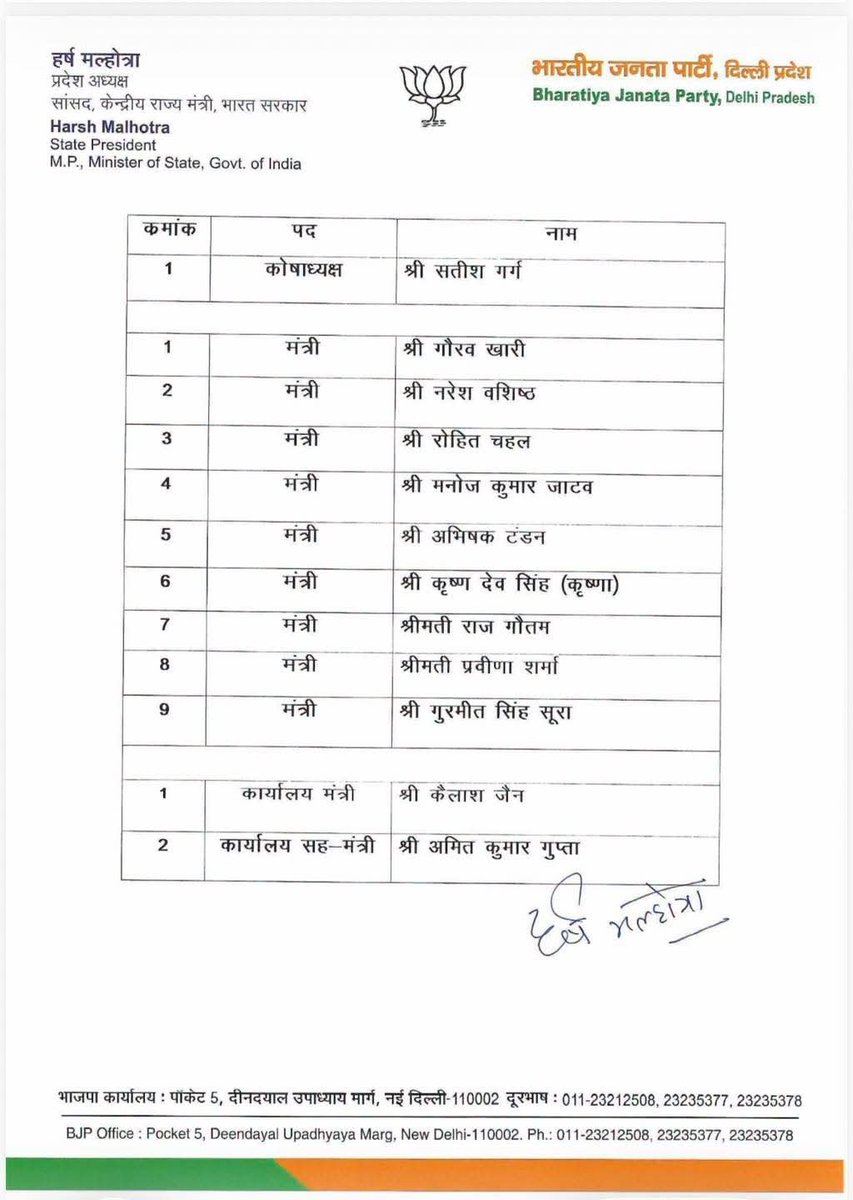 हर्ष मल्होत्रा
प्रदेश अध्यक्ष
सांसद, केन्द्रीय राज्य मंत्री, भारत सरकार
Harsh Malhotra
State President
M.P., Minister of State, Govt. of India
भारतीय जनता पार्टी, दिल्ली प्रदेश
Bharatiya Janata Party, Delhi Pradesh
कमांक पद नाम
1 कोषाध्यक्ष श्री सतीश गर्ग
1 मंत्री श्री गौरव खारी
2 मंत्री श्री नरेश वशिष्ठ
3 मंत्री श्री रोहित चहल
4 मंत्री श्री मनोज कुमार जाटव
5 मंत्री श्री अभिषक टंडन
6 मंत्री श्री कृष्ण देव सिंह (कृष्णा)
7 मंत्री श्रीमती राज गौतम
8 मंत्री श्रीमती प्रवीणा शर्मा
9 मंत्री श्री गुरमीत सिंह सूरा
1 कार्यालय मंत्री श्री कैलाश जैन
2 कार्यालय सह–मंत्री श्री अमित कुमार गुप्ता
हर्ष मल्होत्रा
भाजपा कार्यालय : पॉकेट 5, दीनदयाल उपाध्याय मार्ग, नई दिल्ली-110002 दूरभाष : 011-23212508, 23235377, 23235378
BJP Office : Pocket 5, Deendayal Upadhyaya Marg, New Delhi-110002. Ph.: 011-23212508, 23235377, 23235378